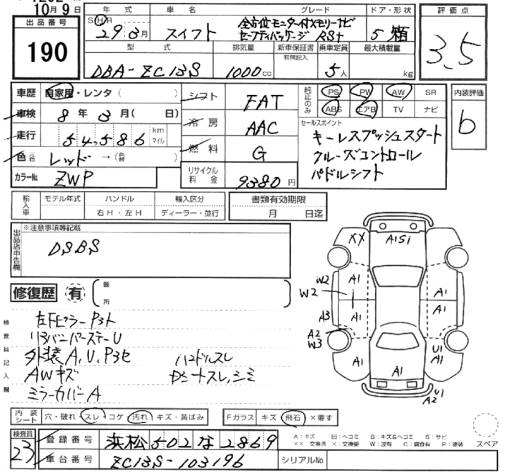 10月9日
出品番号 190
年式 グレード ドア・形状 評価点
S・H・R 29年3月 スイフト 全方位モニター付メモリーナビ
セーフティパッケージ RSt 5 箱
3.5
型式 排気量 新車保証書 乗車定員 最大積載量
有無記入
DBA-ZC13S 1000cc 5人 kg
車歴 自家用・レンタ( ) シフト FAT
純正のみ PS PW AW SR
ABS エアB TV ナビ
内装評価 b
車検 8年3月( 日) 冷房 AAC
セールスポイント
キーレスプッシュスタート
クルーズコントロール
パドルシフト
走行 54,586 km マイル
燃料 G
色名 レッド→(
カラーNo ZWP
リサイクル料金 9380円
輸入車 モデル年式 ハンドル 輸入区分
右H・左H ディーラー・並行
書類有効期限
月 日迄
出品店申告欄
※注意事項等記載
DSBS
修復歴 有 箇所
検査員記入欄
左Fピラー P3ト
リヤバンパーステーU
外装A,U,P3セ ハンドルスレ
AWキズ Dシートスレ,シミ
ミラーカバーA
XX A1S1
W2
W2
A1
A1
A1
A3
A1
A1
A2
W3
U1
A1
A1
U1
A2
内装シート 穴・破れ・スレ・コゲ・汚れ・キズ・黄ばみ
Fガラス キズ・飛石・×要す
スペア
検査員 23
登録番号 浜松 502な2869
車台番号 ZC13S-103196
シリアルNo